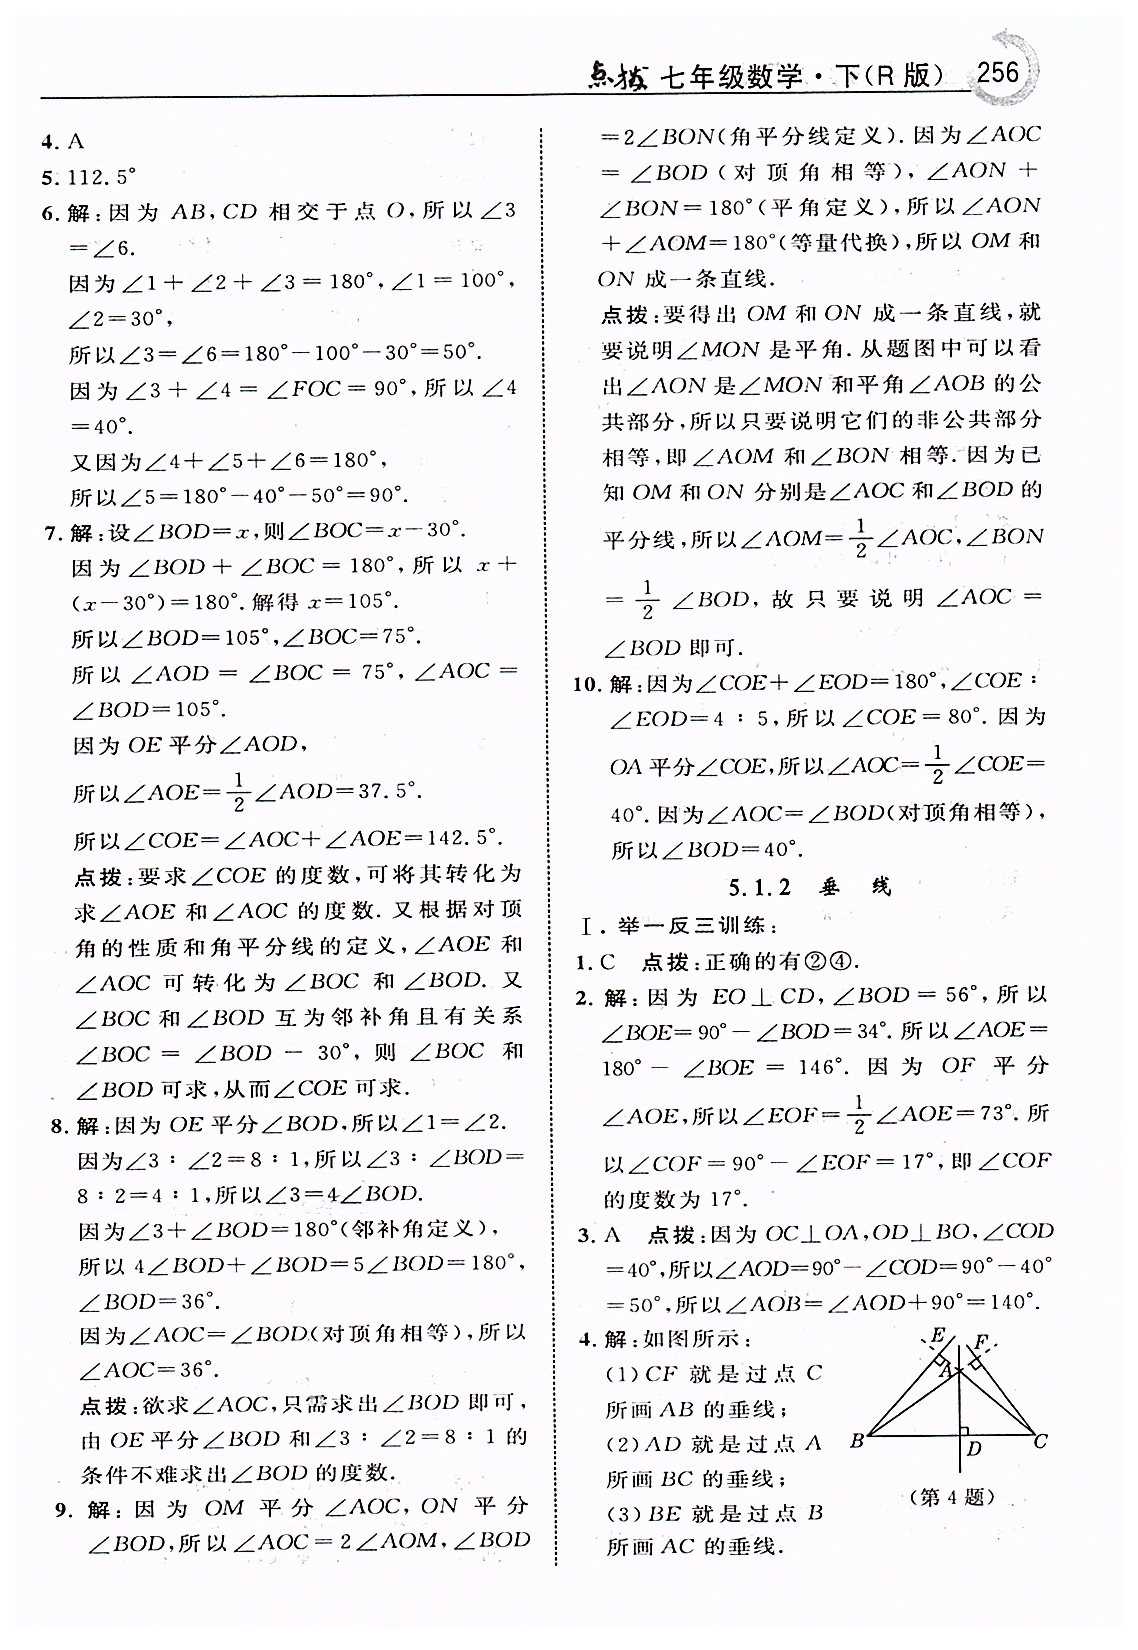 点拨 七年级数学·下(R版) 256
4. A
5. 112.5°
6. 解:因为 AB,CD 相交于点 O,所以∠3
=∠6.
因为∠1+∠2+∠3=180°,∠1=100°,
∠2=30°,
所以∠3=∠6=180°-100°-30°=50°.
因为∠3+∠4=∠FOC=90°,所以∠4
=40°.
又因为∠4+∠5+∠6=180°,
所以∠5=180°-40°-50°=90°.
7. 解:设∠BOD=x,则∠BOC=x-30°.
因为∠BOD+∠BOC=180°,所以 x+
(x-30°)=180°.解得 x=105°.
所以∠BOD=105°,∠BOC=75°.
所以∠AOD=∠BOC=75°,∠AOC=
∠BOD=105°.
因为 OE 平分∠AOD,
所以∠AOE=1/2∠AOD=37.5°.
所以∠COE=∠AOC+∠AOE=142.5°.
点拨:要求∠COE 的度数,可将其转化为
求∠AOE 和∠AOC 的度数. 又根据对顶
角的性质和角平分线的定义,∠AOE 和
∠AOC 可转化为∠BOC 和∠BOD. 又
∠BOC 和∠BOD 互为邻补角且有关系
∠BOC=∠BOD-30°,则∠BOC 和
∠BOD 可求,从而∠COE 可求.
8. 解:因为 OE 平分∠BOD,所以∠1=∠2.
因为∠3∶∠2=8∶1,所以∠3∶∠BOD=
8∶2=4∶1,所以∠3=4∠BOD.
因为∠3+∠BOD=180°(邻补角定义),
所以 4∠BOD+∠BOD=5∠BOD=180°,
∠BOD=36°.
因为∠AOC=∠BOD(对顶角相等),所以
∠AOC=36°.
点拨:欲求∠AOC,只需求出∠BOD 即可,
由 OE 平分∠BOD 和∠3∶∠2=8∶1 的
条件不难求出∠BOD 的度数.
9. 解:因为 OM 平分∠AOC,ON 平分
∠BOD,所以∠AOC=2∠AOM,∠BOD
=2∠BON(角平分线定义). 因为∠AOC
=∠BOD(对顶角相等),∠AON+
∠BON=180°(平角定义),所以∠AON
+∠AOM=180°(等量代换),所以 OM 和
ON 成一条直线.
点拨:要得出 OM 和 ON 成一条直线,就
要说明∠MON 是平角. 从题图中可以看
出∠AON 是∠MON 和平角∠AOB 的公
共部分,所以只要说明它们的非公共部分
相等,即∠AOM 和∠BON 相等. 因为已
知 OM 和 ON 分别是∠AOC 和∠BOD 的
平分线,所以∠AOM=1/2∠AOC,∠BON
=1/2∠BOD,故只要说明∠AOC=
∠BOD 即可.
10. 解:因为∠COE+∠EOD=180°,∠COE∶
∠EOD=4∶5,所以∠COE=80°. 因为
OA 平分∠COE,所以∠AOC=1/2∠COE=
40°. 因为∠AOC=∠BOD(对顶角相等),
所以∠BOD=40°.
5.1.2 垂线
Ⅰ. 举一反三训练:
1. C 点拨:正确的有②④.
2. 解:因为 EO⊥CD,∠BOD=56°,所以
∠BOE=90°-∠BOD=34°. 所以∠AOE=
180°-∠BOE=146°. 因为 OF 平分
∠AOE,所以∠EOF=1/2∠AOE=73°. 所
以∠COF=90°-∠EOF=17°,即∠COF
的度数为 17°.
3. A 点拨:因为 OC⊥OA,OD⊥BO,∠COD
=40°,所以∠AOD=90°-∠COD=90°-40°
=50°,所以∠AOB=∠AOD+90°=140°.
4. 解:如图所示:
(1)CF 就是过点 C
所画 AB 的垂线;
(2)AD 就是过点 A
所画 BC 的垂线;
(3)BE 就是过点 B
所画 AC 的垂线.
E F
A
B D C
(第 4 题)